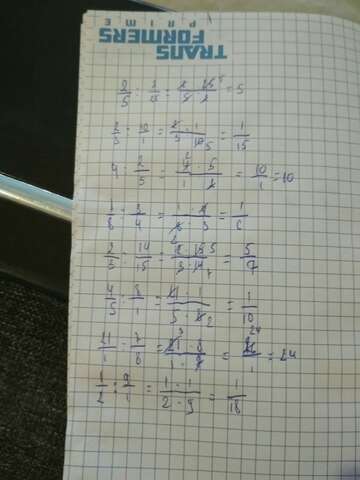 TRANS
FORMERS
PRIME
2/5 : 2/15 = 2·15⁵/5·2 = 5
2/3 : 10/1 = 2·1/3·10₅ = 1/15
4 : 2/5 = 4²·5/1·2 = 10/1 = 10
1/8 : 3/4 = 1·4/8₂·3 = 1/6
2/3 : 14/15 = 2·15⁵/3·14₇ = 5/7
4/5 : 8/1 = 4·1/5·8₂ = 1/10
21/1 : 7/8 = 21³·8/1·7 = 24/1 = 24
1/2 : 9/1 = 1·1/2·9 = 1/18